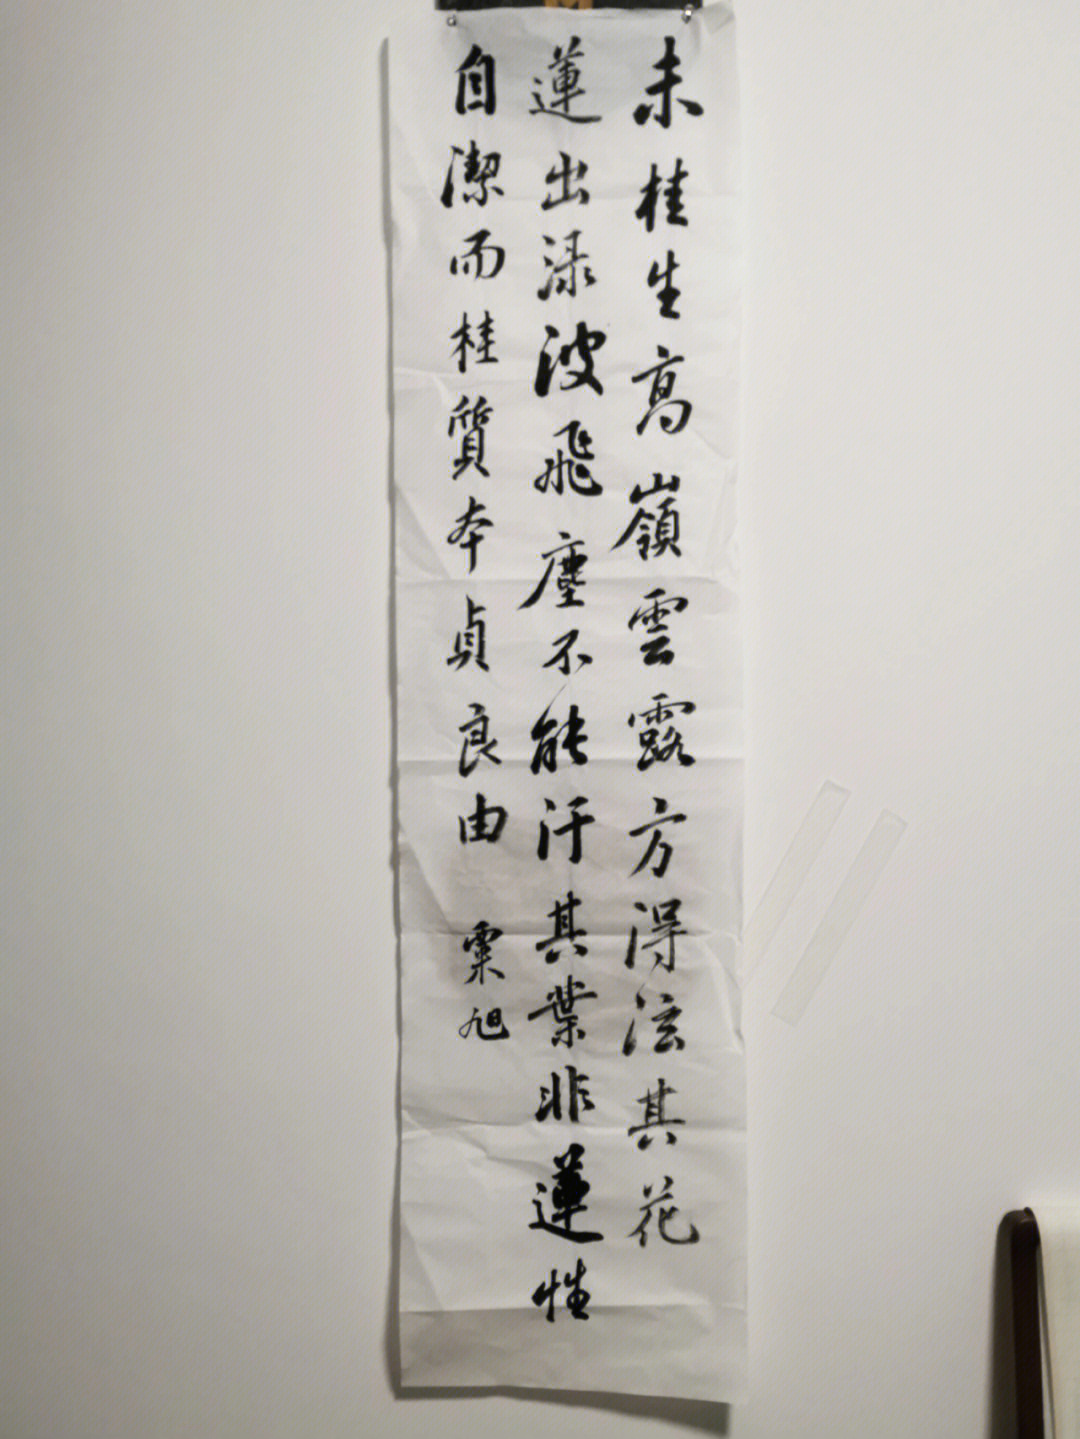 未桂生高嶺雲露方得泫其花
蓮出淥波飛塵不能汙其葉非蓮性
自潔而桂質本貞良由
粟旭